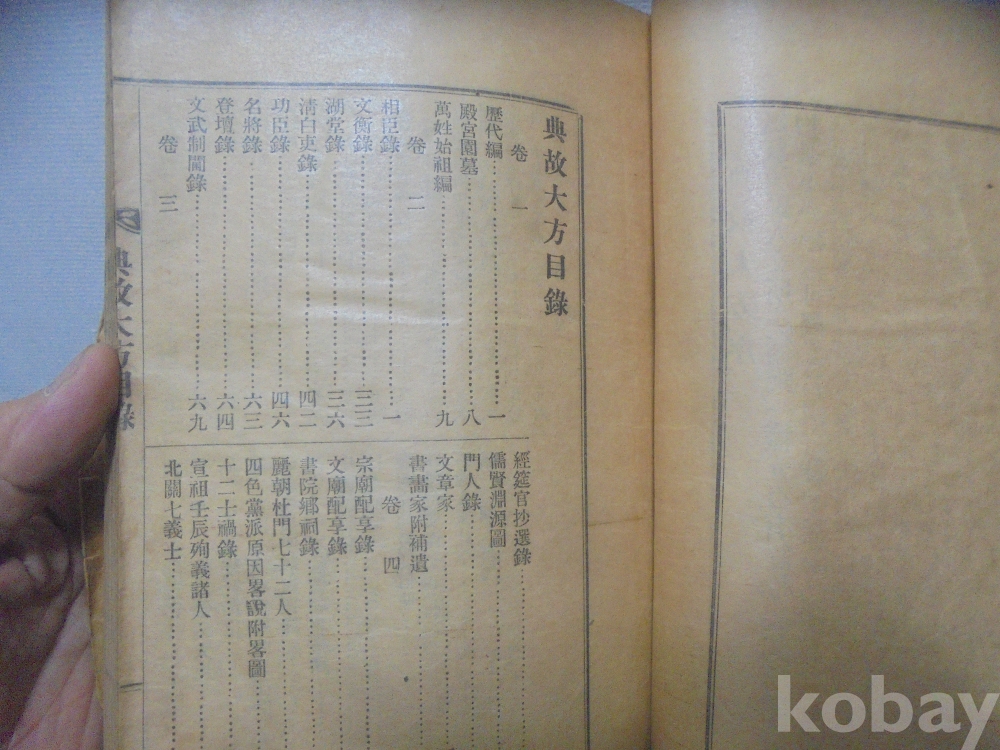 典故大方目錄
卷一
歷代編 一
殿宮園墓 八
萬姓始祖編 九
卷二
相臣錄 一
文衡錄 三三
湖堂錄 三六
淸白吏錄 四二
功臣錄 四六
名將錄 六三
登壇錄 六四
文武制閫錄 六九
卷三
經筵官抄選錄
儒賢淵源圖
門人錄
文章家
書畵家附補遺
卷四
宗廟配享錄
文廟配享錄
書院鄕祠錄
麗朝杜門七十二人
四色黨派原因畧說附畧圖
十二士禍錄
宣祖壬辰殉義諸人
北關七義士
典故大方目錄
kobay